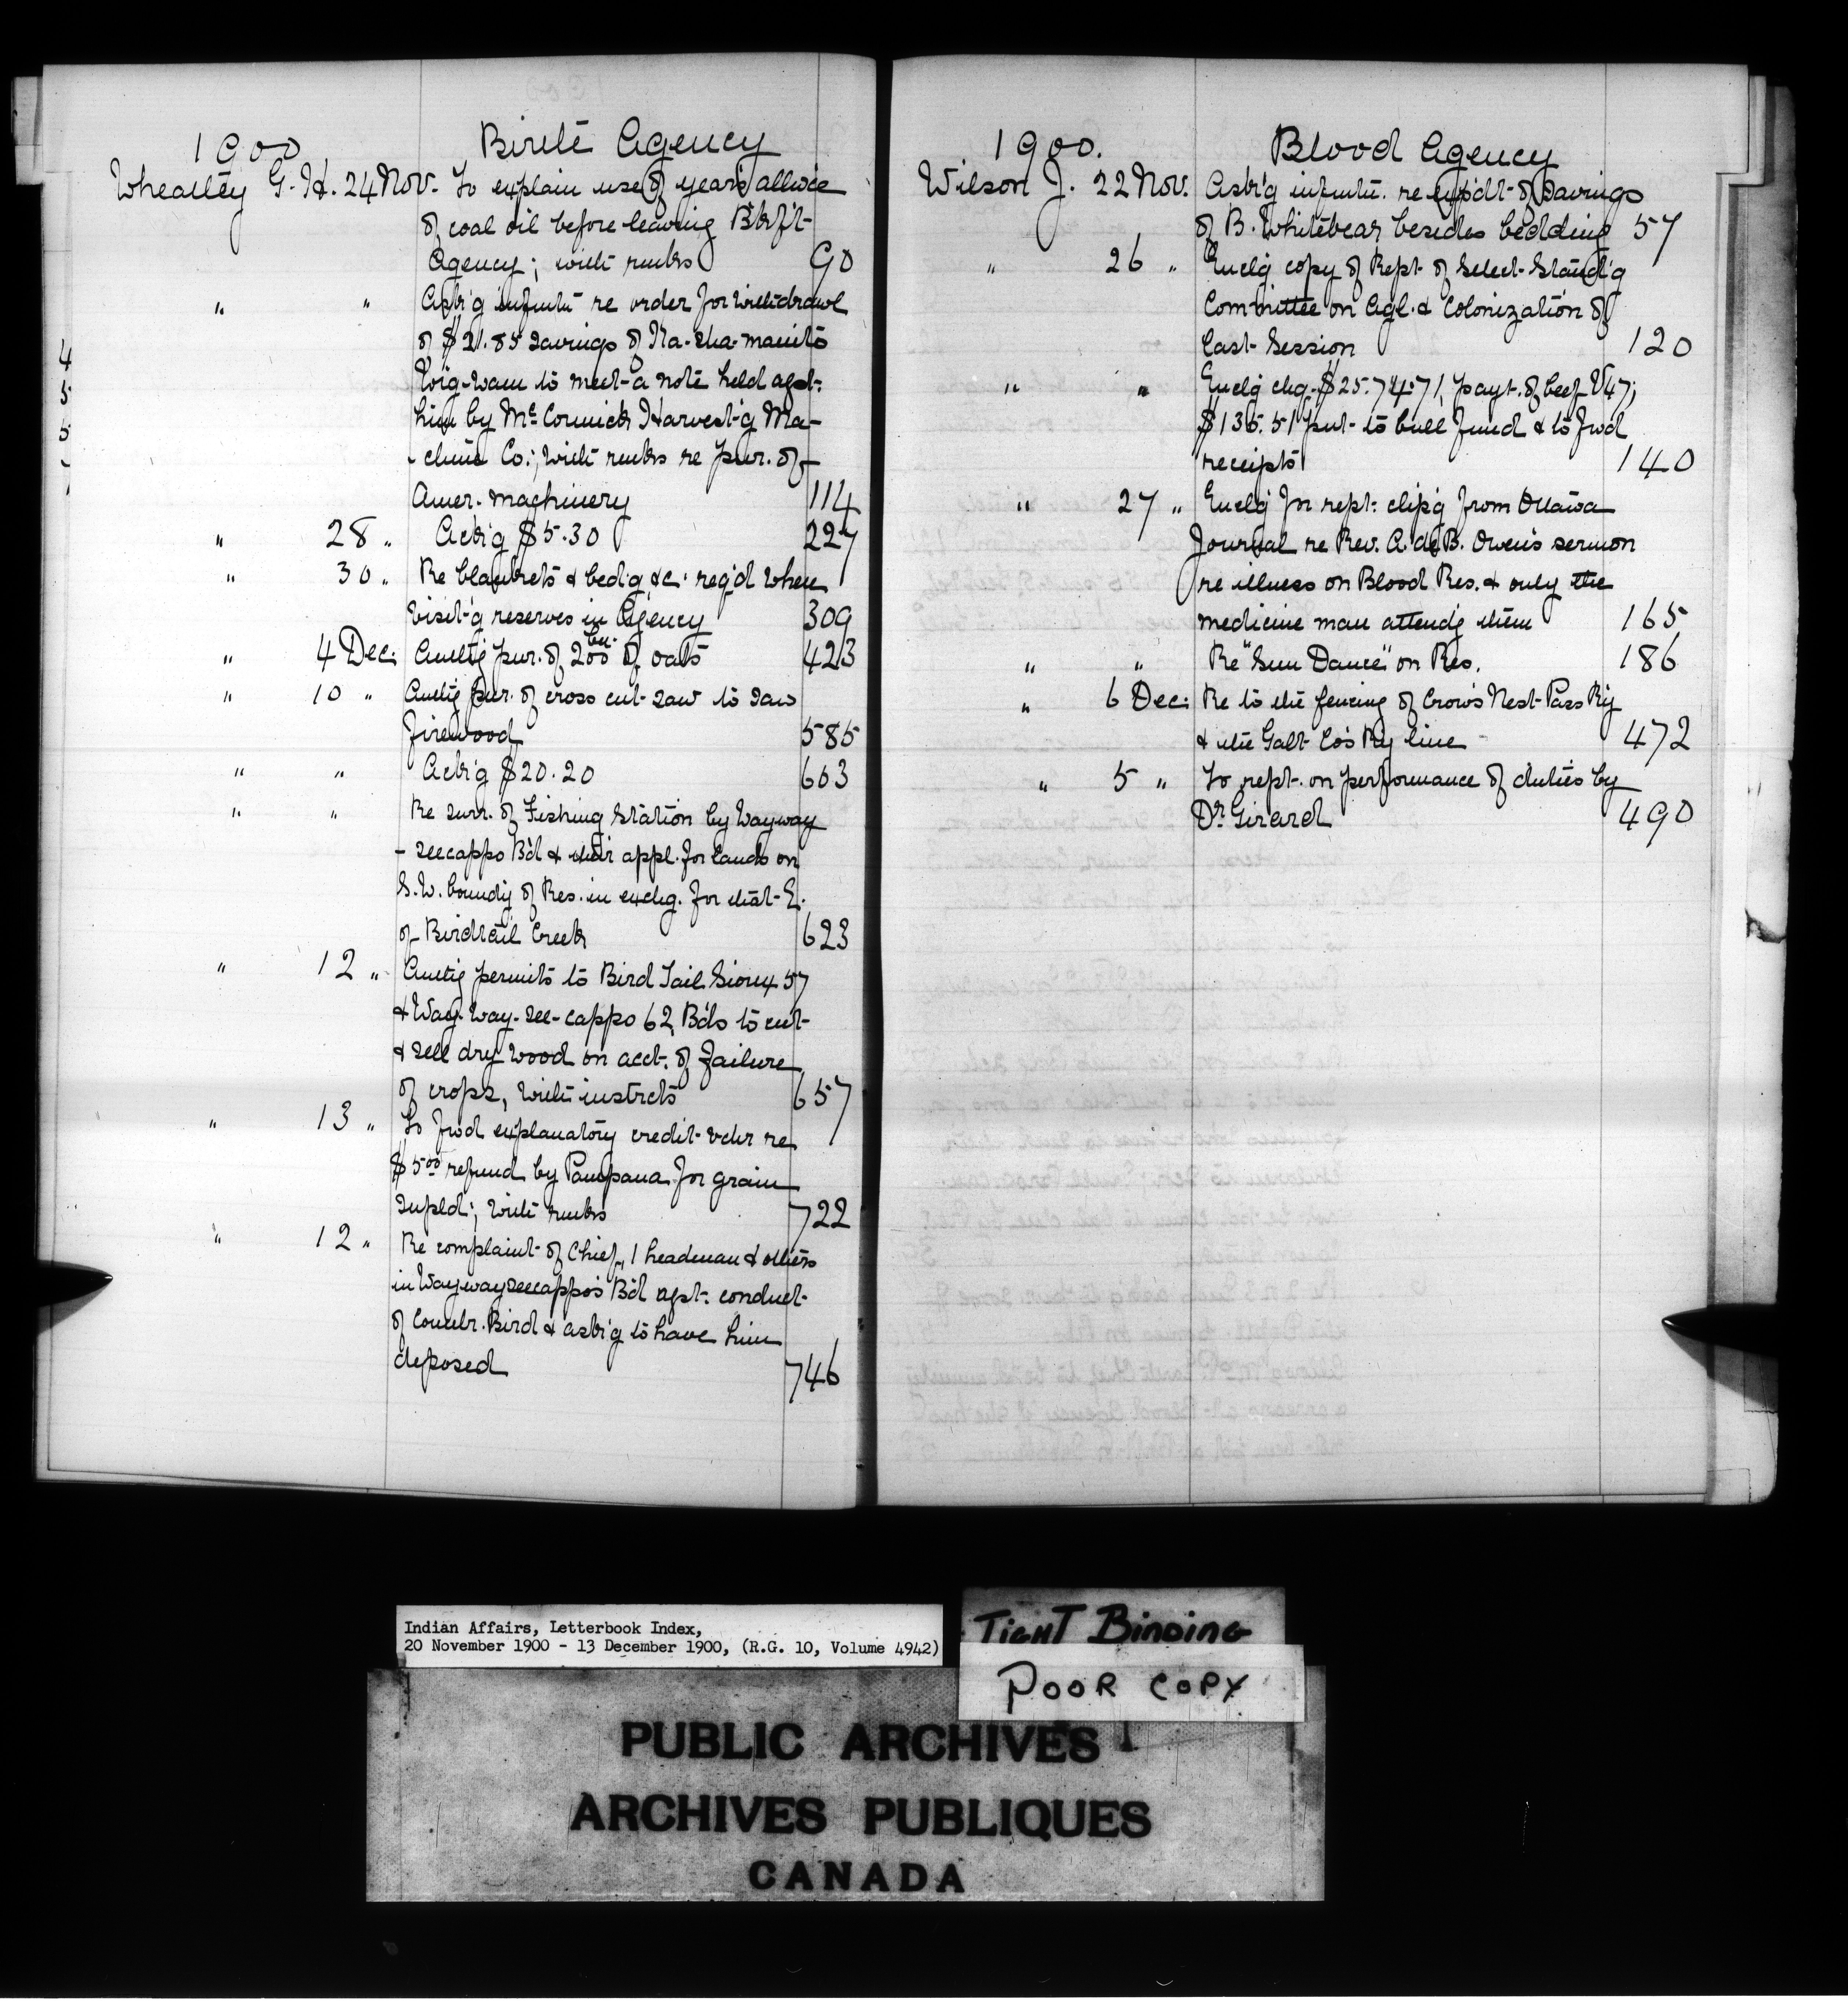 1900 Birtle Agency
Wheatley G. H. 24 Nov. To explain use of year's allwce
of coal oil before leaving Bkft
Agency; with rmks 90
" " Askg infmtn re order for withdrawl
of $21.85 savings of Na-sha-manito
Wig-wam to meet a note held agst.
him by McCormick Harvest'g Ma-
chine Co.; with rmks re pur. of
Amer. machinery 114
" 28 " Ackg $5.30 227
" 30 " Re blankets & bedg &c. reqd when
visit'g reserves in Agency 309
" 4 Dec. Authg pur. of 200 bu. of oats 423
" 10 " Authg pur. of cross cut saw to saw
firewood 585
" " Ackg $20.20 603
" " Re surr. of Fishing Station by Wayway
- seecappo Bd & their appl. for lands on
S.W. boundy of Res. in exchg. for that E.
of Birdtail Creek 623
" 12 " Authg permits to Bird Tail Sioux 57
& Way-way-see-cappo 62 Bds to cut
& sell dry wood on acct. of failure
of crops, with instrcts 657
" 13 " To fwd explanatory credit vchr re
$5.00 refund by Pampana for grain
supld; with rmks 722
" 12 " Re complaint of Chief, 1 headman & others
in Waywayseecappo's Bd agst. conduct
of Counlr. Bird & askg to have him
deposed 746
1900. Blood Agency
Wilson J. 22 Nov. Askg infmtn. re expdt of savings
of B. Whitebear besides bedding 57
" 26 " Enclg copy of Rept of Select Standg
Committee on Agl. & Colonization of
last Session 120
" " Enclg chq. $25.74.71, payt. of beef V47;
$136.51 put to bull fund & to fwd
receipts 140
" 27 " Enclg for rept. clipg from Ottawa
Journal re Rev. A. de B. Owen's sermon
re illness on Blood Res. & only the
medicine man attendg them 165
" " Re "Sun Dance" on Res. 186
" 6 Dec. Re to the fencing of Crow's Nest Pass Ry
& the Galt Co's Ry line 472
" 5 " To rept. on performance of duties by
Dr. Girard 490
Indian Affairs, Letterbook Index,
20 November 1900 - 13 December 1900, (R.G. 10, Volume 4942)
TIGHT BINDING
POOR COPY
PUBLIC ARCHIVES
ARCHIVES PUBLIQUES
CANADA